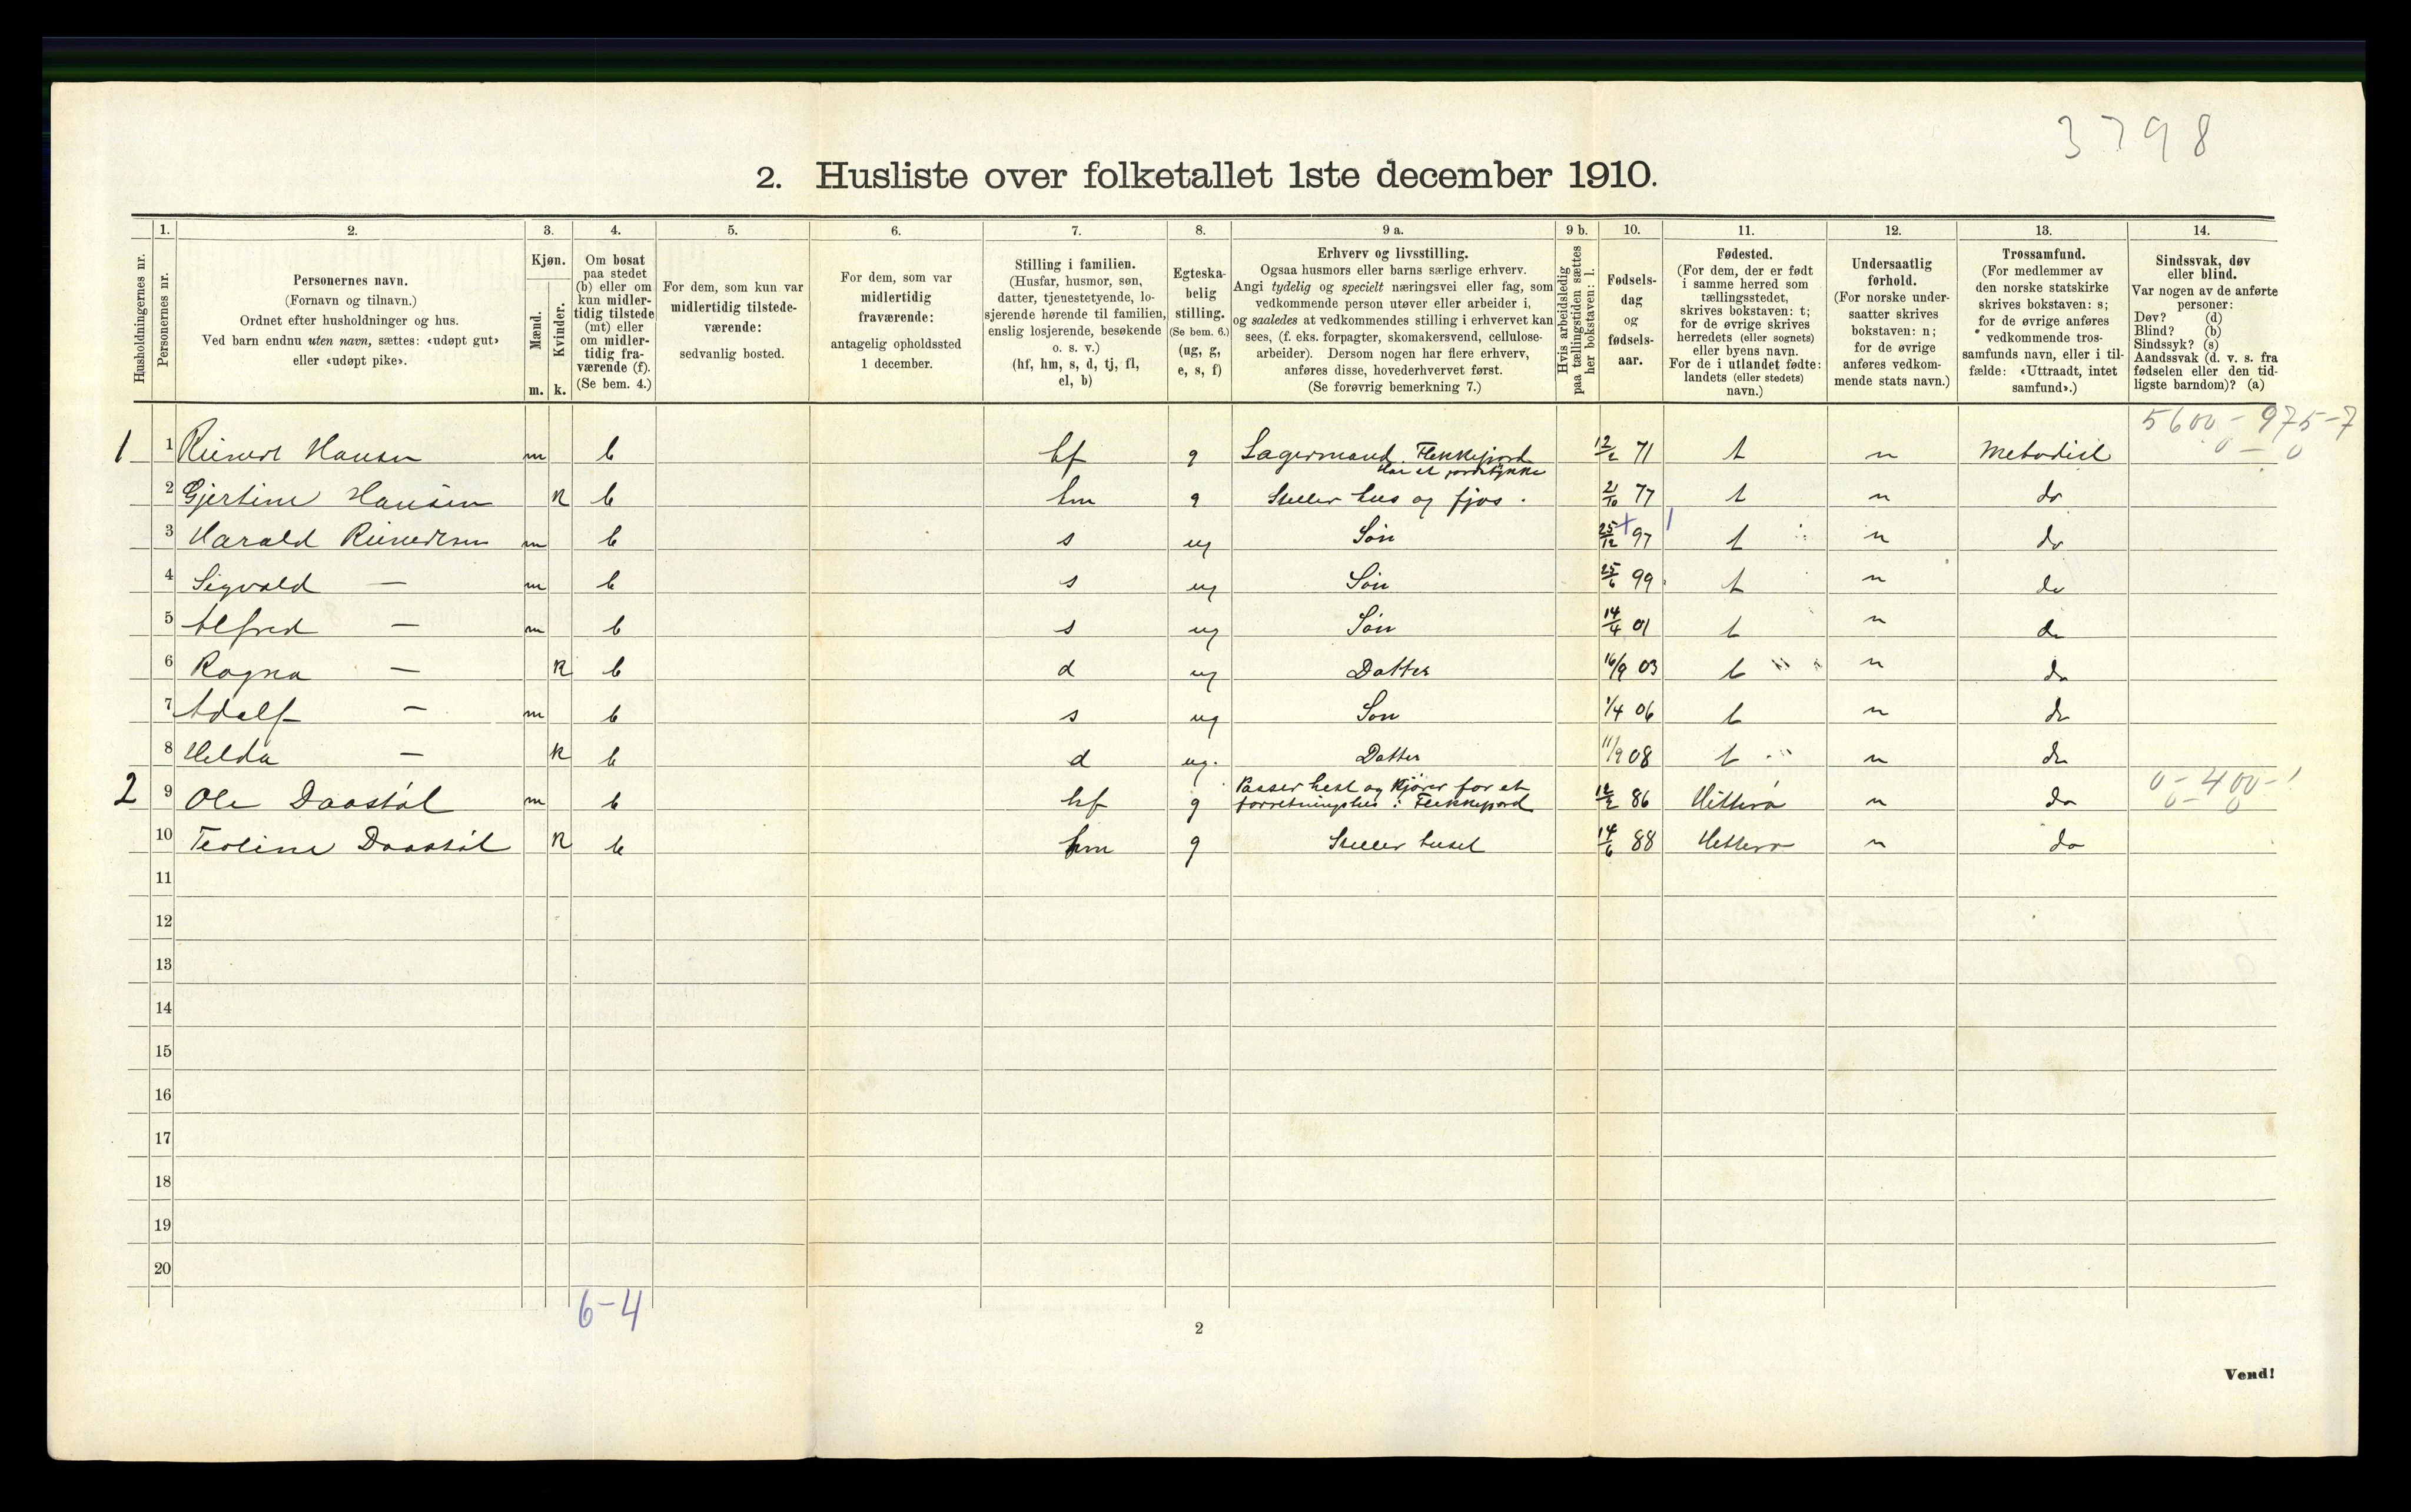 3798
2. Husliste over folketallet 1ste december 1910.
Husholdningernes nr.
1. Personernes nr.
2. Personernes navn.
(Fornavn og tilnavn.)
Ordnet efter husholdninger og hus.
Ved barn endnu uten navn, sættes: «udøpt gut»
eller «udøpt pike».
3. Kjøn.
Mænd. m.
Kvinder. k.
4. Om bosat
paa stedet
(b) eller om
kun midler-
tidig tilstede
(mt) eller
om midler-
tidig fra-
værende (f).
(Se bem. 4.)
5. For dem, som kun var
midlertidig tilstede-
værende:
sedvanlig bosted.
6. For dem, som var
midlertidig
fraværende:
antagelig opholdssted
1 december.
7. Stilling i familien.
(Husfar, husmor, søn,
datter, tjenestetyende, lo-
sjerende hørende til familien,
enslig losjerende, besøkende
o. s. v.)
(hf, hm, s, d, tj, fl,
el, b)
8. Egteska-
belig
stilling.
(Se bem. 6.)
(ug, g,
e, s, f)
9 a. Erhverv og livsstilling.
Ogsaa husmors eller barns særlige erhverv.
Angi tydelig og specielt næringsvei eller fag, som
vedkommende person utøver eller arbeider i,
og saaledes at vedkommendes stilling i erhvervet kan
sees, (f. eks. forpagter, skomakersvend, cellulose-
arbeider). Dersom nogen har flere erhverv,
anføres disse, hovederhvervet først.
(Se forøvrig bemerkning 7.)
9 b. Hvis arbeidsledig
paa tællingstiden sættes
her bokstaven: l.
10. Fødsels-
dag
og
fødsels-
aar.
11. Fødested.
(For dem, der er født
i samme herred som
tællingsstedet,
skrives bokstaven: t;
for de øvrige skrives
herredets (eller sognets)
eller byens navn.
For de i utlandet fødte:
landets (eller stedets)
navn.)
12. Undersaatlig
forhold.
(For norske under-
saatter skrives
bokstaven: n;
for de øvrige
anføres vedkom-
mende stats navn.)
13. Trossamfund.
(For medlemmer av
den norske statskirke
skrives bokstaven: s;
for de øvrige anføres
vedkommende tros-
samfunds navn, eller i til-
fælde: «Uttraadt, intet
samfund».)
14. Sindssvak, døv
eller blind.
Var nogen av de anførte
personer:
Døv? (d)
Blind? (b)
Sindssyk? (s)
Aandssvak (d. v. s. fra
fødselen eller den tid-
ligste barndom)? (a)
5600 - 975-7
0 - 0
1 1 Reinert Hansen m b hf g Lagermand Flekkefjord 12/2 71 t n Metodist
Har et jordstykke
2 Gjertine Hansen k b hm g Steller hus og fjøs. 2/10 77 t n do
3 Harald Reinertsen m b s ug Søn 25/12 97 t n do
4 Sigvald — m b s ug Søn 25/6 99 t n do
5 Alfred — m b s ug Søn 14/4 01 t n do
6 Ragna — k b d ug Datter 16/9 03 t n do
7 Adolf — m b s ug Søn 1/4 06 t n do
8 Helda — k b d ug. Datter 11/9 08 t n do
Passer hest og kjører for et
2 9 Ole Daastøl m b hf g forretningshus i Flekkefjord 12/2 86 Hitterø n do
0 - 400 - 1
0 - 0
10 Teoline Daastøl k b hm g Steller huset 14/6 88 Hitterø n do
11
12
13
14
15
16
17
18
19
20
6-4
2
Vend!